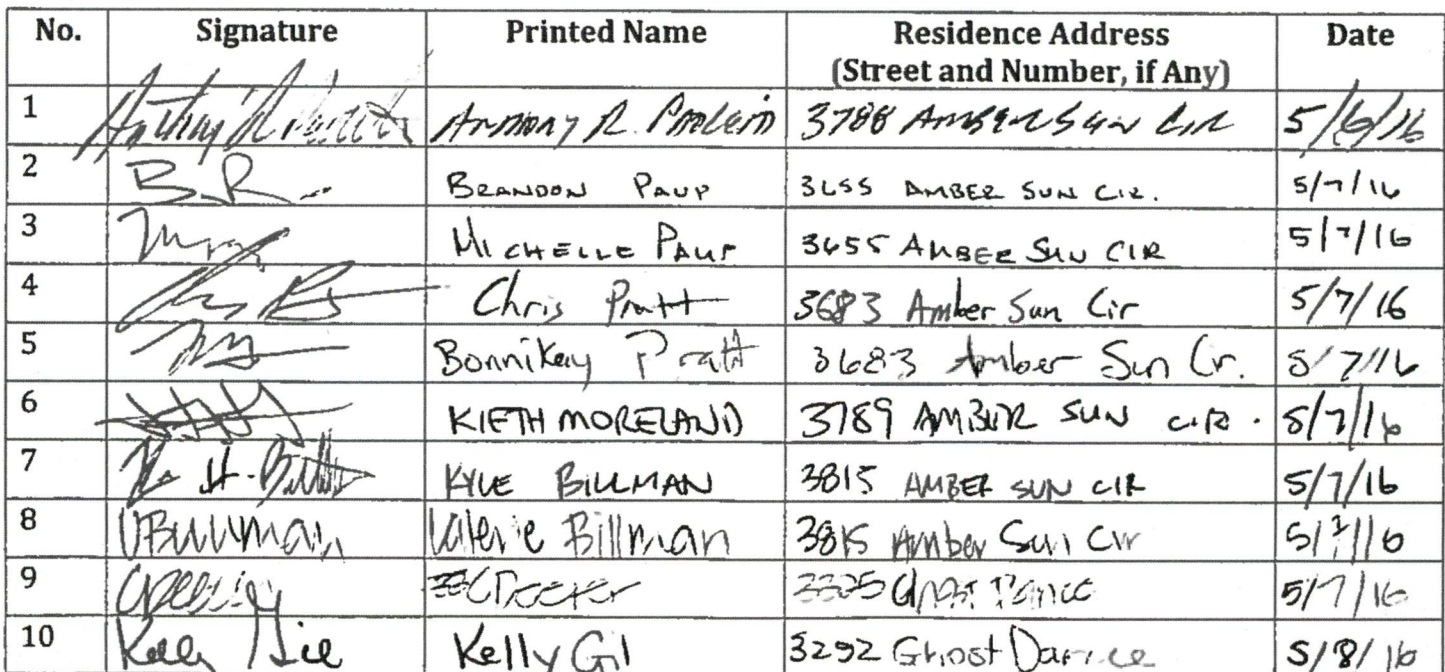 No. Signature Printed Name Residence Address (Street and Number, if Any) Date
1 Anthony R. 3788 AMBER SUN CIR 5/6/16
2 B.R. BRANDON PAUP 3655 AMBER SUN CIR. 5/7/16
3 MICHELLE PAUP 3655 AMBER SUN CIR 5/7/16
4 Chris Pratt 3683 Amber Sun Cir 5/7/16
5 BonniKay Pratt 3683 Amber Sun Cr. 5/7/16
6 KIETH MORELAND 3789 AMBUR SUN CIR. 5/7/16
7 KYLE BILLMAN 3815 AMBER SUN CIR 5/7/16
8 VBillman Valerie Billman 3815 Amber Sun Cir 5/7/16
9 Ghost Dance 5/7/16
10 Kelly Gil Kelly Gil 3292 Ghost Dance 5/8/16